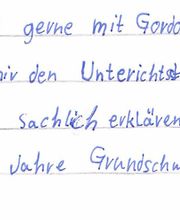 gerne mit Gordo
ir den Unterichts
sachlich erklären
Jahre Grundschu